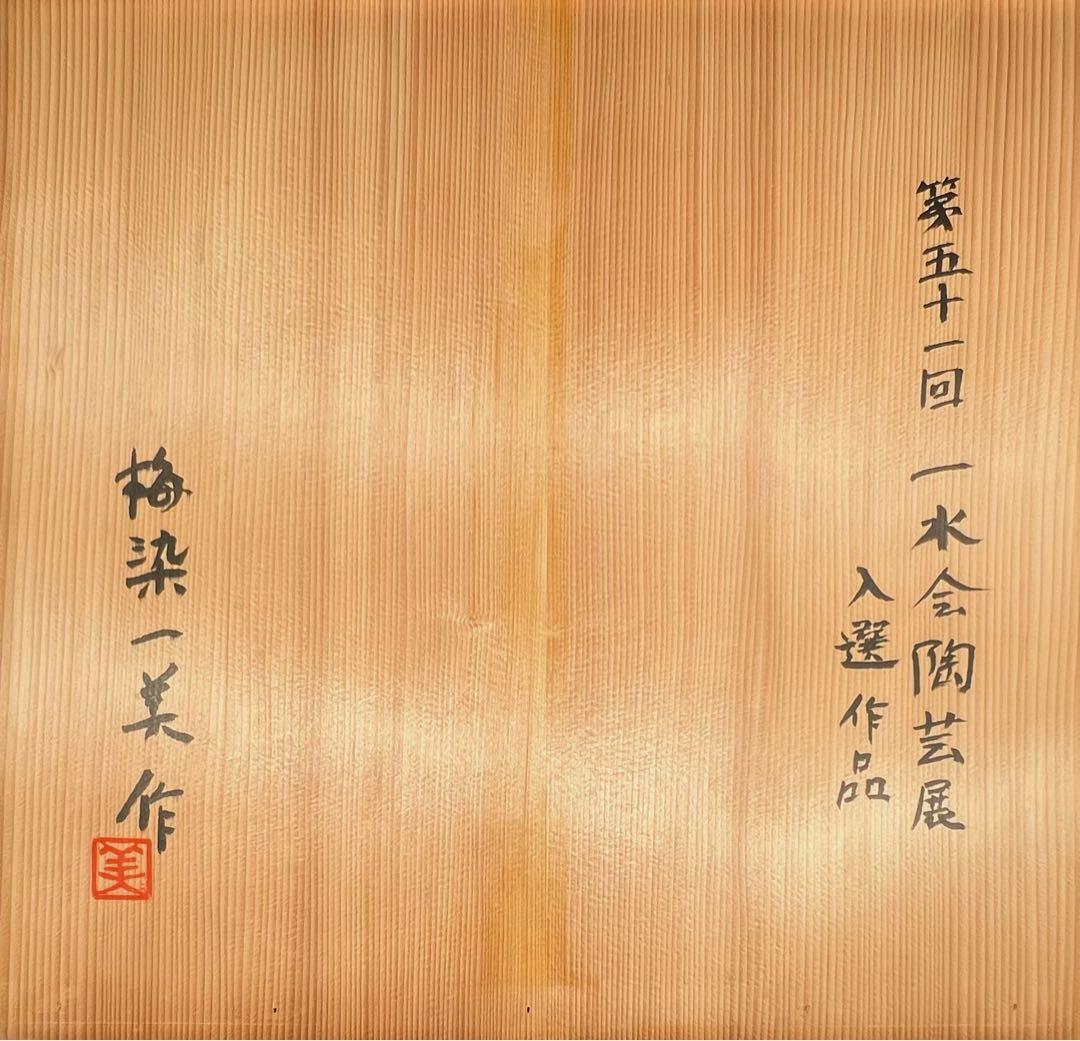 第五十一回 一水会陶芸展
入選作品
梅染一美作
美